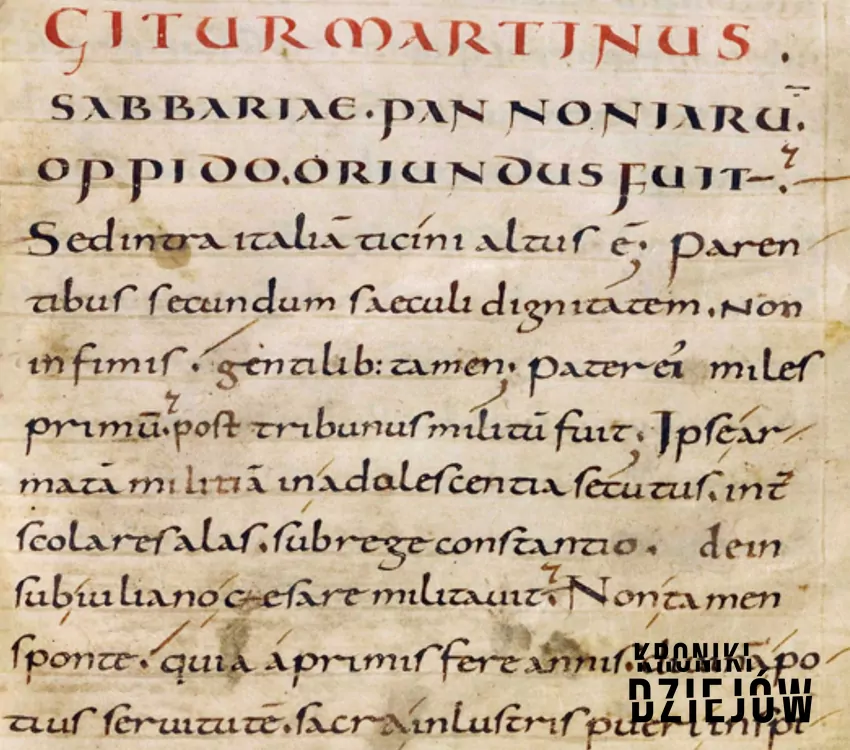 GITUR MARTINUS .
SABBARIAE. PANNONIARŪ.
OPPIDO. ORIUNDUS FUIT.
Sed intra italiā ticini altus ē; Paren
tibus secundum saeculi dignitatem. Non
infimis. gentilib: tamen; Pater ei miles
primū. post tribunus militū fuit; Ipse ar
matā militiā in adolescentia secutus. int̄
scolares alas. sub rege constantio. dein
sub iuliano cęsare militauit. Non tamen
sponte. quia a primis fere annis. po
tius seruitutē. sacra inlustris pueri inspi
KRONIKI
DZIEJÓW